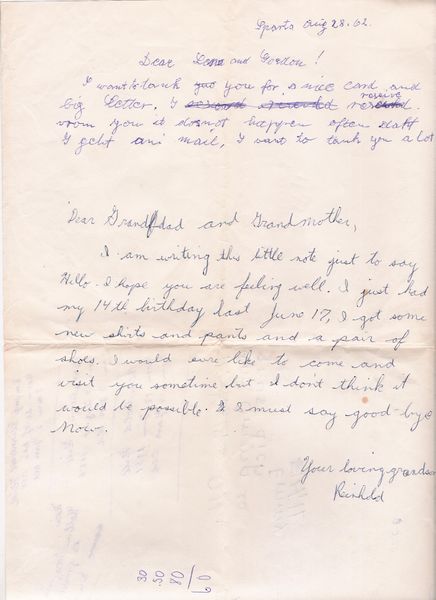 Sparta Aug 28. 62.
Dear Lena and Gordon!
I want to tank you you for a nice card and
big letter. I receive
from you it doesnot happen often datt
I geht ani mail, I want to tank you a lot
Dear Grandfdad and Grandmother,
I am writing this little note just to say
Hello. I hope you are feeling well. I just had
my 14th birthday last June 17, I got some
new shirts and pants and a pair of
shoes. I would sure like to come and
visit you sometime but I don't think it
would be possible. I must say good-bye
Now.
Your loving grandson
Reinhold
30
.50
80
60